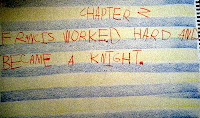 CHAPTER 2
FRANCIS WORKED HARD AND
BECAME A KNIGHT.